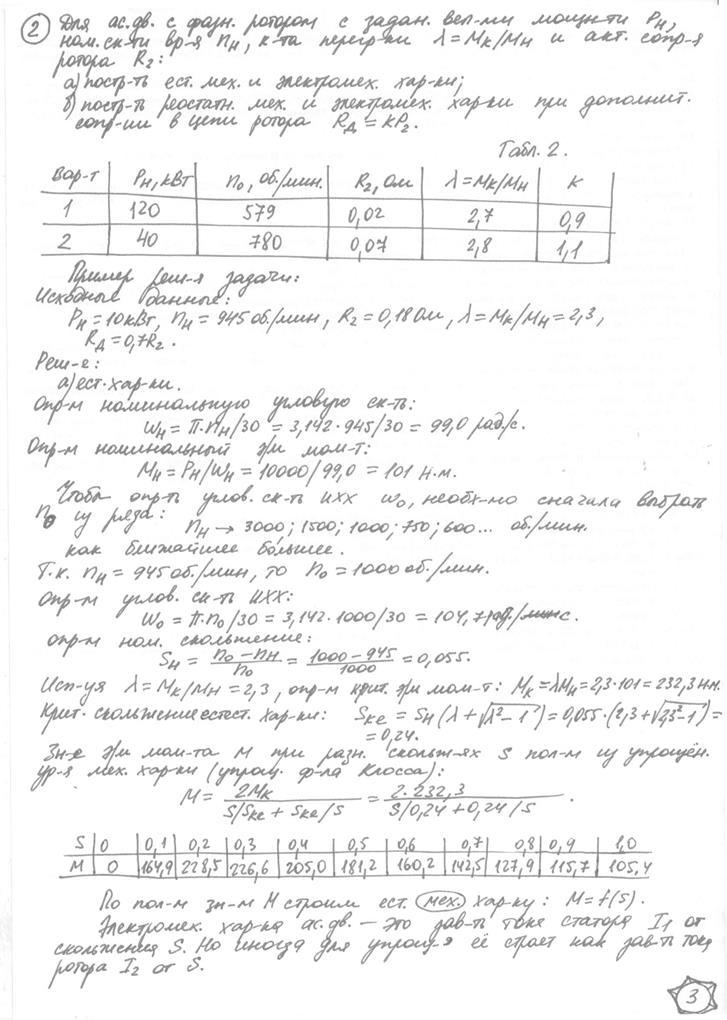 2 Для ас.дв. с фазн. ротором с задан. вел-ми мощн-ти Pн,
ном. ск-ти вр-я nн, к-та перегр-ки λ=Mк/Mн и акт. сопр-я
ротора R₂:
а) постр-ть ест. мех. и электромех. хар-ки;
б) постр-ть реостатн. мех. и электромех. хар-ки при дополнит.
сопр-ии в цепи ротора Rд = кР₂.
Табл. 2.
Вар-т Pн, кВт n₀, об./мин. R₂, Ом λ=Mк/Mн к
1 120 579 0,02 2,7 0,9
2 40 780 0,07 2,8 1,1
Пример реш-я задачи:
Исходные данные:
Pн = 10 кВт, nн = 945 об/мин, R₂ = 0,18 Ом, λ = Mк/Mн = 2,3,
Rд = 0,7R₂.
Реш-е:
а) ест. хар-ки.
Опр-м номинальную угловую ск-ть:
Wн = π·nн/30 = 3,142·945/30 = 99,0 рад/с.
Опр-м номинальный э/м мом-т:
Mн = Pн/Wн = 10000/99,0 = 101 Н.м.
Чтобы опр-ть углов. ск-ть ИХХ W₀, необх-мо сначала выбрать
n₀ из ряда: nн → 3000; 1500; 1000; 750; 600... об/мин.
как ближайшее большее.
Т.к. nн = 945 об./мин, то n₀ = 1000 об./мин.
Опр-м углов. ск-ть ИХХ:
W₀ = π·n₀/30 = 3,142·1000/30 = 104,7 рад/с.
опр-м ном. скольжение:
Sн = n₀ - nн / n₀ = 1000 - 945 / 1000 = 0,055.
Исп-уя λ = Mк/Mн = 2,3, опр-м крит. э/м мом-т: Mк = λMн = 2,3·101 = 232,3 Н.м.
Крит. скольжение естест. хар-ки: Sке = Sн (λ + √λ² - 1) = 0,055·(2,3 + √2,3² - 1) =
= 0,24.
Зн-е э/м мом-та M при разн. скольж-ях S пол-м из упрощён.
ур-я мех. хар-ки (упрощ. ф-ла Клосса):
M = 2Mк / S/Sке + Sке/S = 2·232,3 / S/0,24 + 0,24/S .
S 0 0,1 0,2 0,3 0,4 0,5 0,6 0,7 0,8 0,9 1,0
M 0 164,9 228,5 226,6 205,0 181,2 160,2 142,5 127,9 115,7 105,4
По пол-м зн-м M строим ест. мех. хар-ку: M = f(S).
Электромех. хар-ка ас.дв. — это зав-ть тока статора I₁ от
скольжения S. Но иногда для упрощ-я её строят как зав-ть тока
ротора I₂ от S.
3